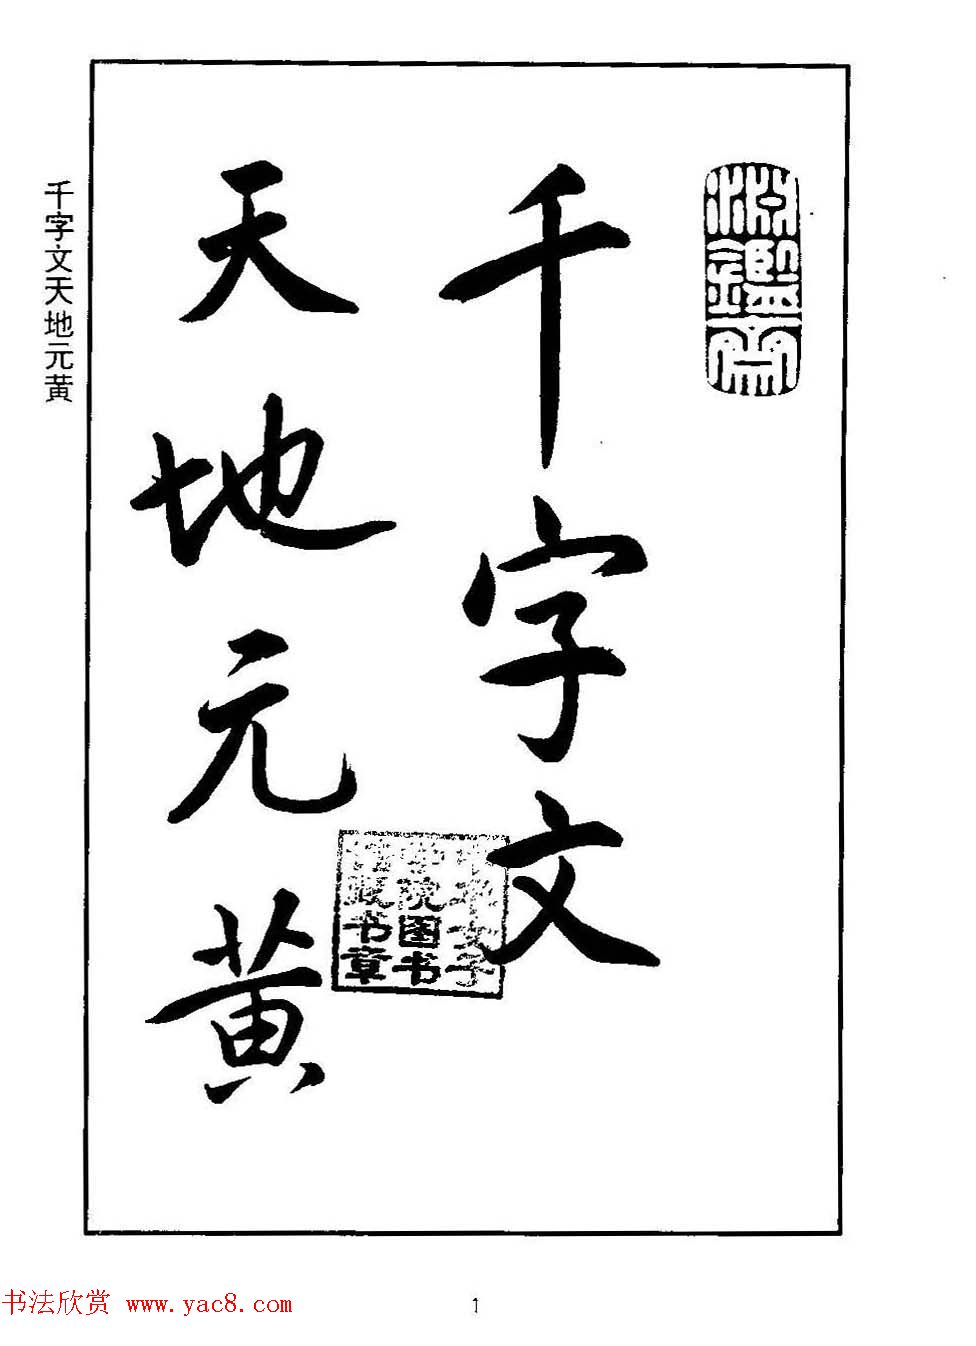 渊鑑斋
千字文
天地元黄
千字文天地元黄
图书
书章
书法欣赏 www.yac8.com
1